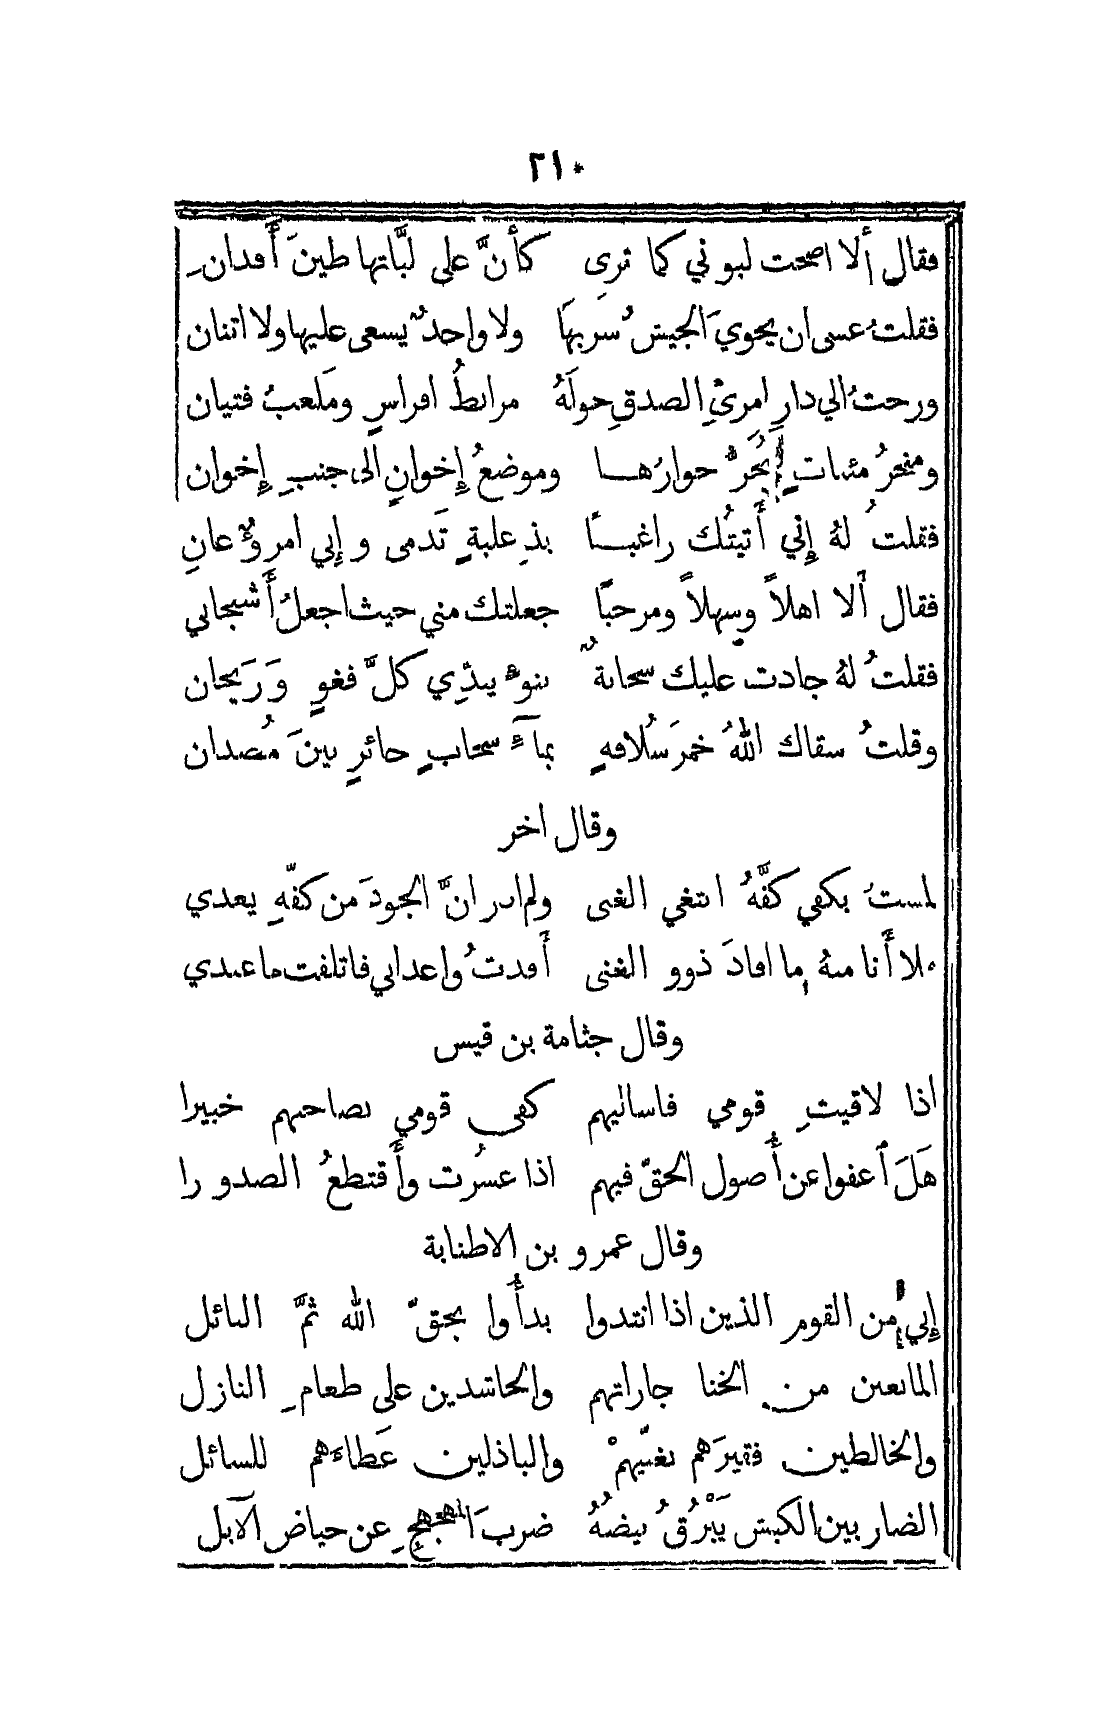 ٢١٠
فقال ألا اضحت لبوني كما ترى كأنَّ على لبَّاتها طينَ أَفدانِ
فقلتُ عسى ان يحويَ الجيشُ سَربهَا ولا واحدٌ يسعى عليها ولا اثنان
ورحتُ الي دارِ امرئِ الصدقِ حولَهُ مرابطُ افراسٍ ومَلعبُ فتيان
ومنحرُ مئناتٍ يُجَرُّ حوارُها وموضعُ إِخوانٍ الى جنبِ إِخوان
فقلتُ لهُ إِنّي أَتيتُك راغبًا بذِعلبةٍ تَدمى وإِني امروٌ عانِ
فقال أَلا اهلاً وسهلاً ومرحبًا جعلتك مني حيث اجعلُ أَشجاني
فقلتُ لهُ جادت عليك سحابةٌ بنوءٍ يندّي كلَّ فغوٍ وَرَيحان
وقلتُ سقاك اللهُ خمرَ سُلافهٍ بمآءِ سحابٍ حائرٍ بينَ مُصدان
وقال اخر
لمستُ بكفي كفَّهُ ابتغي الغنى ولم ادر انَّ الجودَ من كفّهِ يعدي
فلا أَنا منهُ ما افادَ ذوو الغنى أَفدتُ واعداني فاتلفت ما عندي
وقال جثامة بن قيس
اذا لاقيتِ قومي فاساليهم كفى قومي بصاحبهم خبيرا
هَلَ أعفوا عن أُصول الحقّ فيهم اذا عسُرت وأَقتطعُ الصدورا
وقال عمرو بن الاطنابة
إِني من القوم الذين اذا انتدوا بدأُوا بحقّ الله ثمَّ النائل
المانعين من الخنا جاراتهم والحاشدين على طعامِ النازل
والخالطين فقيرَهم بغنيّهمْ والباذلين عَطاءَهم للسائل
الضاربين الكبش يَبْرُقُ بيضُهُ ضربَ المهجهجِ عن حياض الآبل